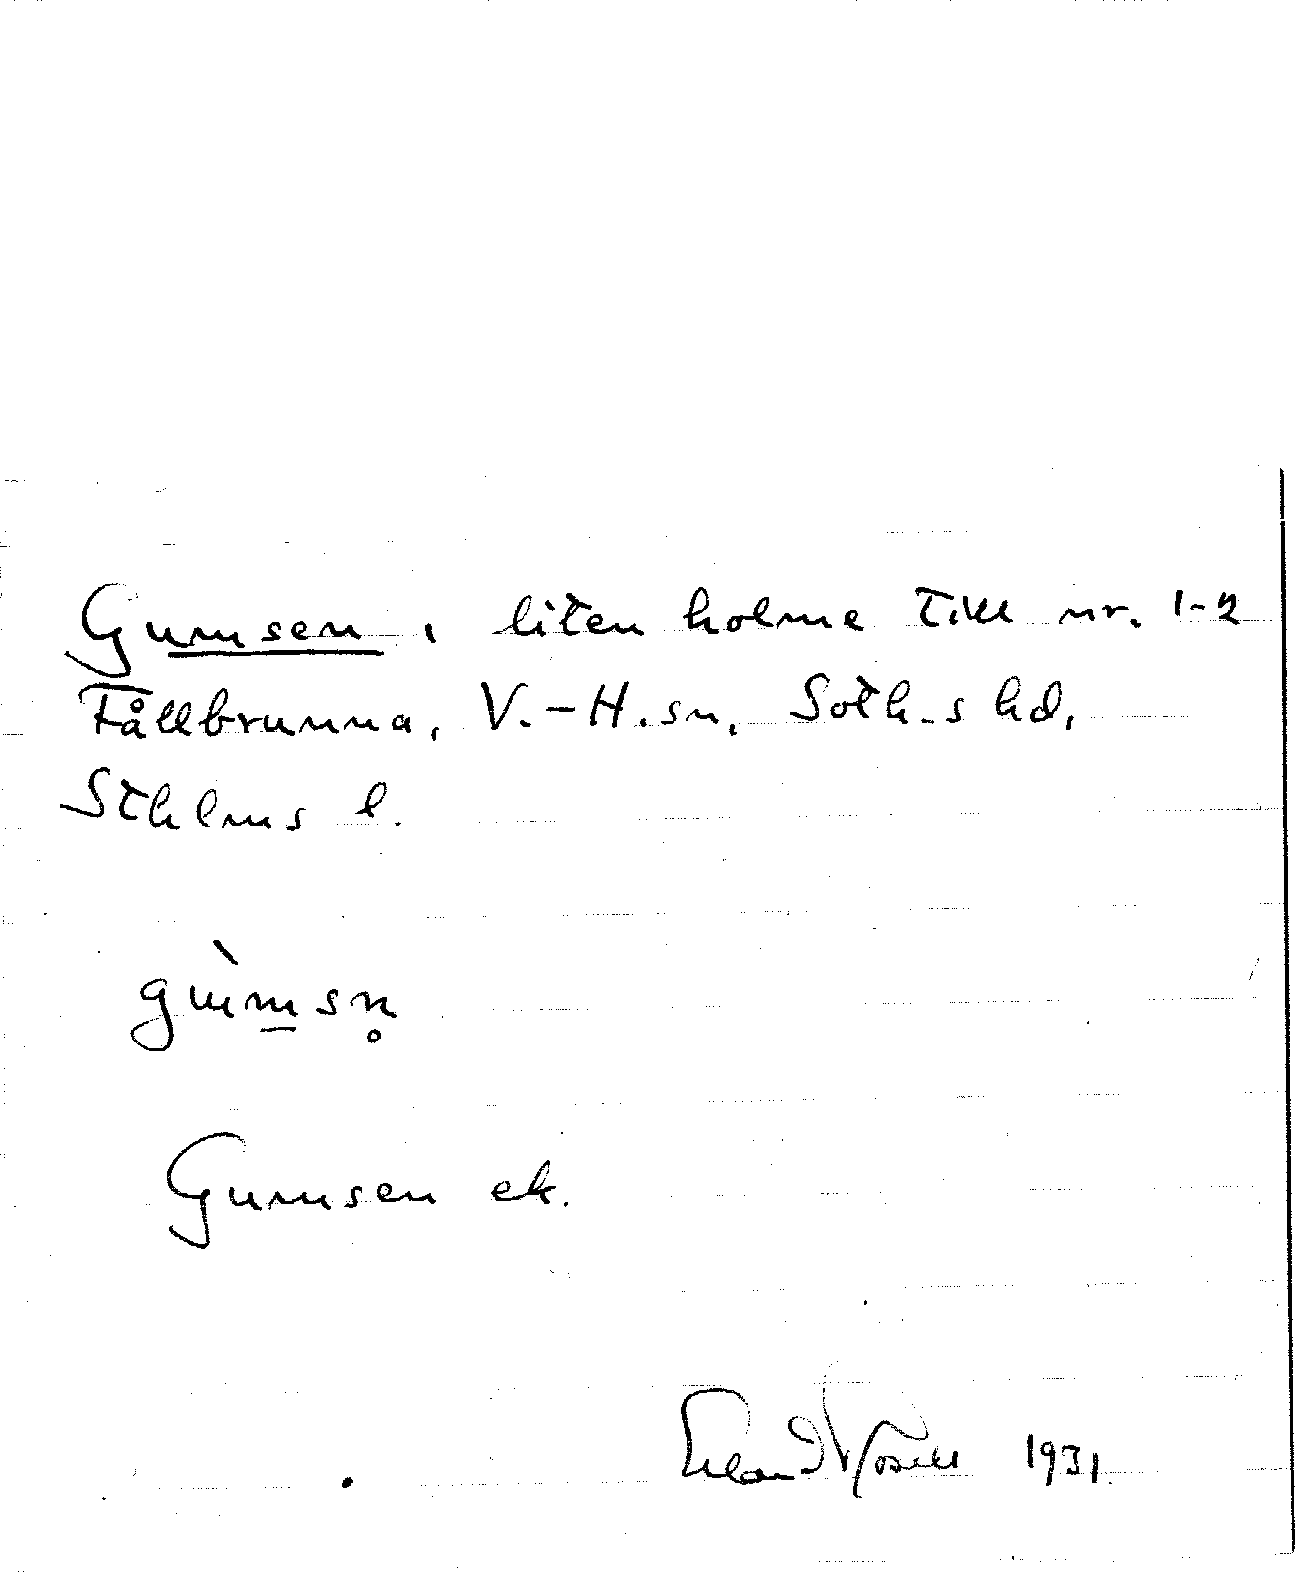 Gumsen, liten holme till nr. 1-2
Fållbrunna, V.-H. sn, Soth-s hd,
Sthlms l.
gùmsn̥
Gumsen ek.
Erland Rosell 1931.